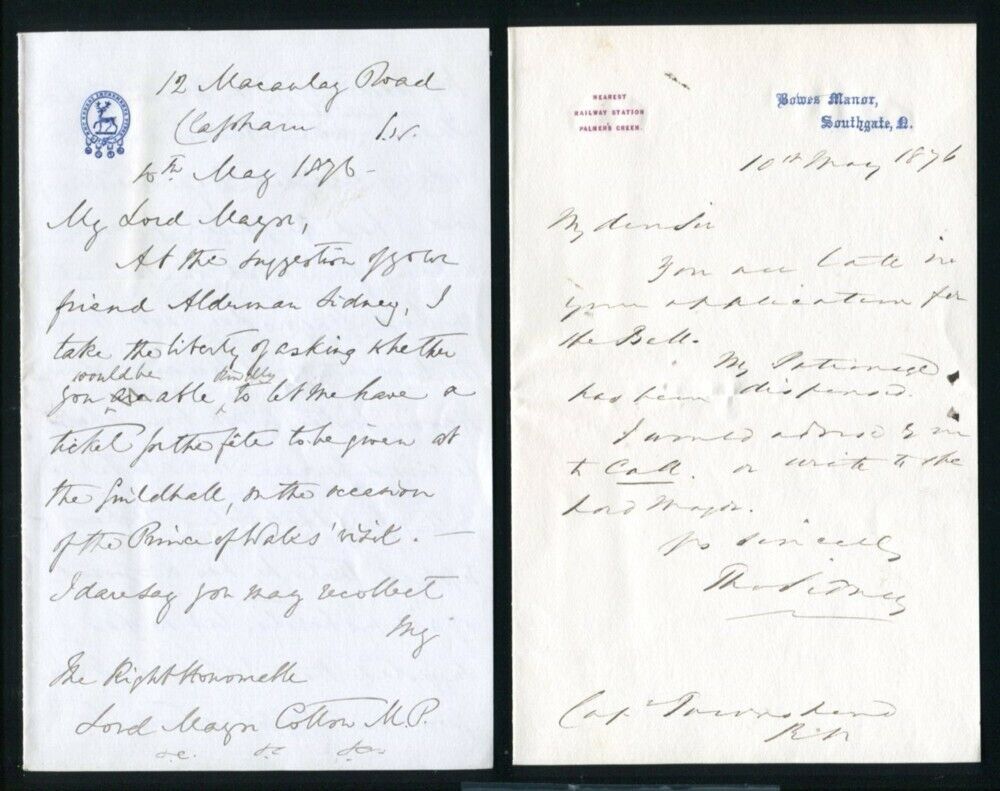 12 Macaulay Road
Clapham S.W.
May 1876 -
My Lord Mayor,
At the suggestion of your
friend Alderman Sidney, I
take the liberty of asking whether
would be kindly
you able to let me have a
ticket for the fête to be given at
the Guildhall, on the occasion
of the Prince of Wales' visit. —
I dare say you may recollect
my
The Right Honorable
Lord Mayor Cotton M.P.
&c. &c &c.
NEAREST
RAILWAY STATION
PALMERS GREEN.
Bowes Manor,
Southgate, N.
10th May 1876
My dear Sir
You are late in
your application for
the Ball.
My Patronage
has been dispensed.
I would advise you
to Call. or write to the
Lord Mayor.
Yrs sincerely
Thos Sidney
Capt Townshend
R.N